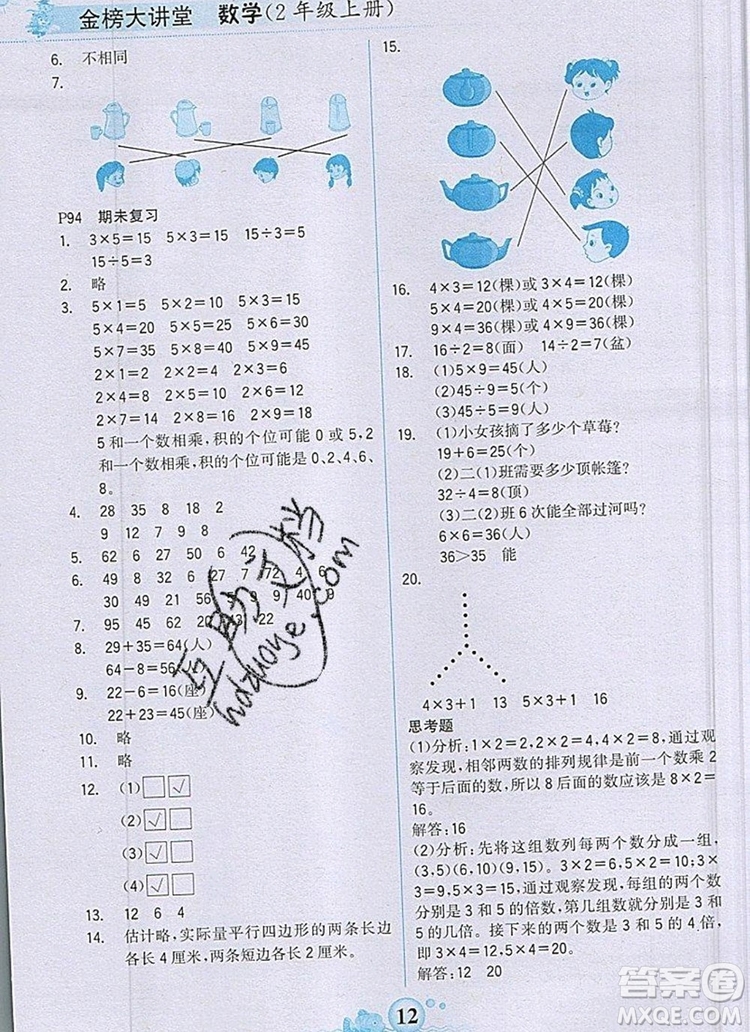 金榜大讲堂 数学(2年级上册)
6. 不相同
7.
P94 期末复习
1. 3×5=15 5×3=15 15÷3=5
15÷5=3
2. 略
3. 5×1=5 5×2=10 5×3=15
5×4=20 5×5=25 5×6=30
5×7=35 5×8=40 5×9=45
2×1=2 2×2=4 2×3=6
2×4=8 2×5=10 2×6=12
2×7=14 2×8=16 2×9=18
5和一个数相乘,积的个位可能0或5,2
和一个数相乘,积的个位可能是0、2、4、6、
8。
4. 28 35 8 18 2
9 12 7 9 8
5. 62 6 27 50 6 42
6. 49 8 32 6 7 72 4 6
30 49 21 56 9 9 40 9
7. 95 45 62 20 43 22
8. 29+35=64(人)
64-8=56
9. 22-6=16(座)
22+23=45(座)
10. 略
11. 略
12. (1)□☑
(2)☑□
(3)☑□
(4)☑□
13. 12 6 4
14. 估计略,实际量平行四边形的两条长边
各长3厘米,两条短边各长2厘米。
15.
16. 4×3=12(棵)或3×4=12(棵)
5×4=20(棵)或4×5=20(棵)
9×4=36(棵)或4×9=36(棵)
17. 16÷2=8(面) 14÷2=7(盆)
18. (1)5×9=45(人)
(2)45÷9=5(个)
(3)45÷5=9(个)
19. (1)小女孩摘了多少个草莓?
19+6=25(个)
(2)二(1)班需要多少顶帐篷?
32÷4=8(顶)
(3)二(2)班6次能全部过河吗?
6×6=36(人)
36>35 能
20.
4×3+1 13 5×3+1 16
思考题
(1)分析:1×2=2,2×2=4,4×2=8,通过
观察发现,相邻两数的排列规律是前一个数乘2
等于后面的数,所以8后面的数应该是8×2=
16。
解答:16
(2)分析:先将这组数列每两个数分成一组,
(3,5)(6,10)(9,15)。3×2=6,5×2=10;3×
3=9,5×3=15,通过观察发现,每组的两个数
分别是3和5的倍数,第几组的数分别就是3和
5的几倍。接下来的两个数分别是3和5的4倍,
即3×4=12,5×4=20。
解答:12 20
12
互助文档
hdzuoye.com
答案圈
MXQE.COM